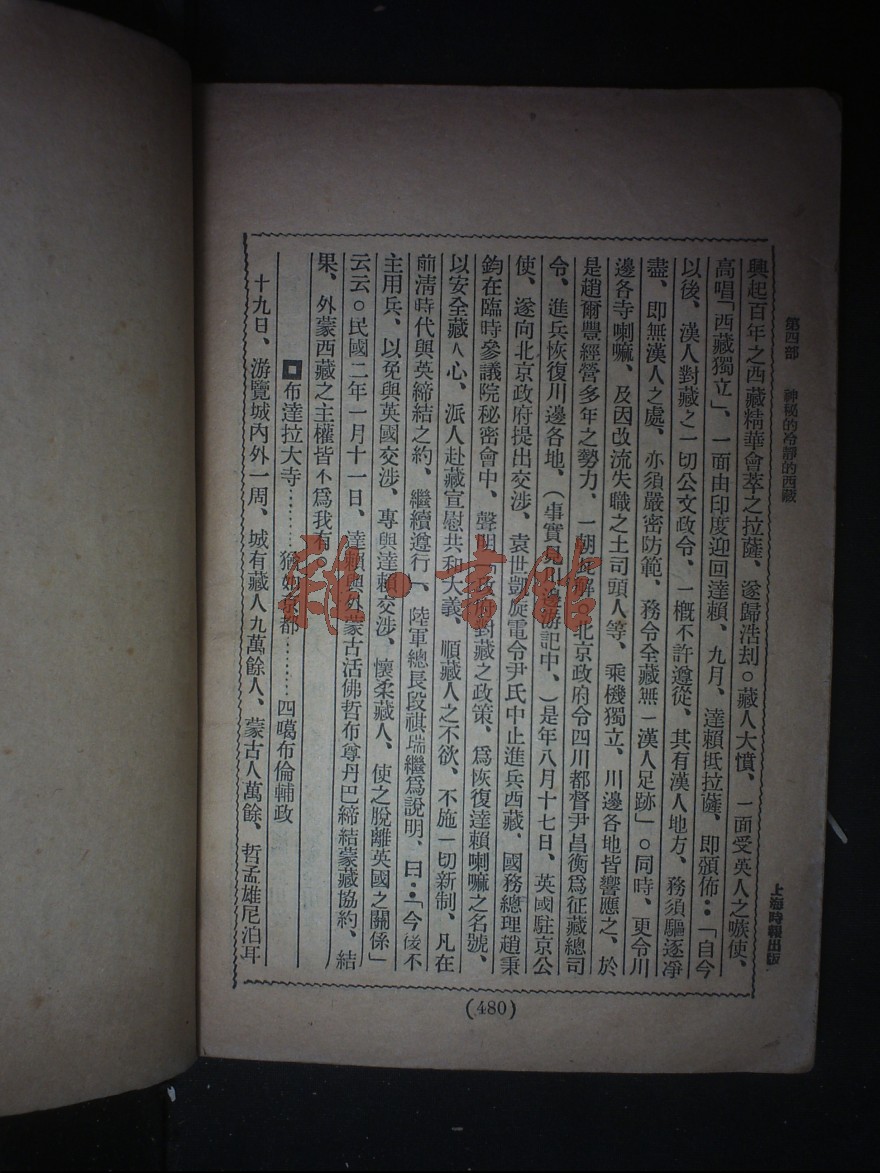 第四部　神秘的冷靜的西藏
上海時報出版
興起百年之西藏精華會萃之拉薩、遂歸浩刦。藏人大憤、一面受英人之嗾使、
高唱「西藏獨立」、一面由印度迎回達賴、九月、達賴抵拉薩、即頒佈：「自今
以後、漢人對藏之一切公文政令、一概不許遵從、其有漢人地方、務須驅逐凈
盡、即無漢人之處、亦須嚴密防範、務令全藏無一漢人足跡」。同時、更令川
邊各寺喇嘛、及因改流失職之土司頭人等、乘機獨立、川邊各地皆響應之、於
是趙爾豐經營多年之勢力、一朝解北京政府令四川都督尹昌衡爲征藏總司
令、進兵恢復川邊各地、（事實見川邊游記中、）是年八月十七日、英國駐京公
使、遂向北京政府提出交涉、袁世凱旋電令尹氏中止進兵西藏、國務總理趙秉
鈞在臨時參議院秘密會中、聲明政府對藏之政策、爲恢復達賴喇嘛之名號、
以安全藏人心、派人赴藏宣慰共和大義、順藏人之不欲、不施一切新制、凡在
前清時代與英締結之約、繼續遵行、陸軍總長段祺瑞繼爲說明、曰：「今後不
主用兵、以免與英國交涉、專與達賴交涉、懷柔藏人、使之脫離英國之關係」
云云。民國二年一月十一日、達賴與外蒙古活佛哲布尊丹巴締結蒙藏協約、結
果、外蒙西藏之主權皆不爲我有
布達拉大寺………猶如京都………四噶布倫輔政
十九日、游覽城內外一周、城有藏人九萬餘人、蒙古人萬餘、哲孟雄尼泊耳
(480)
雜·書館